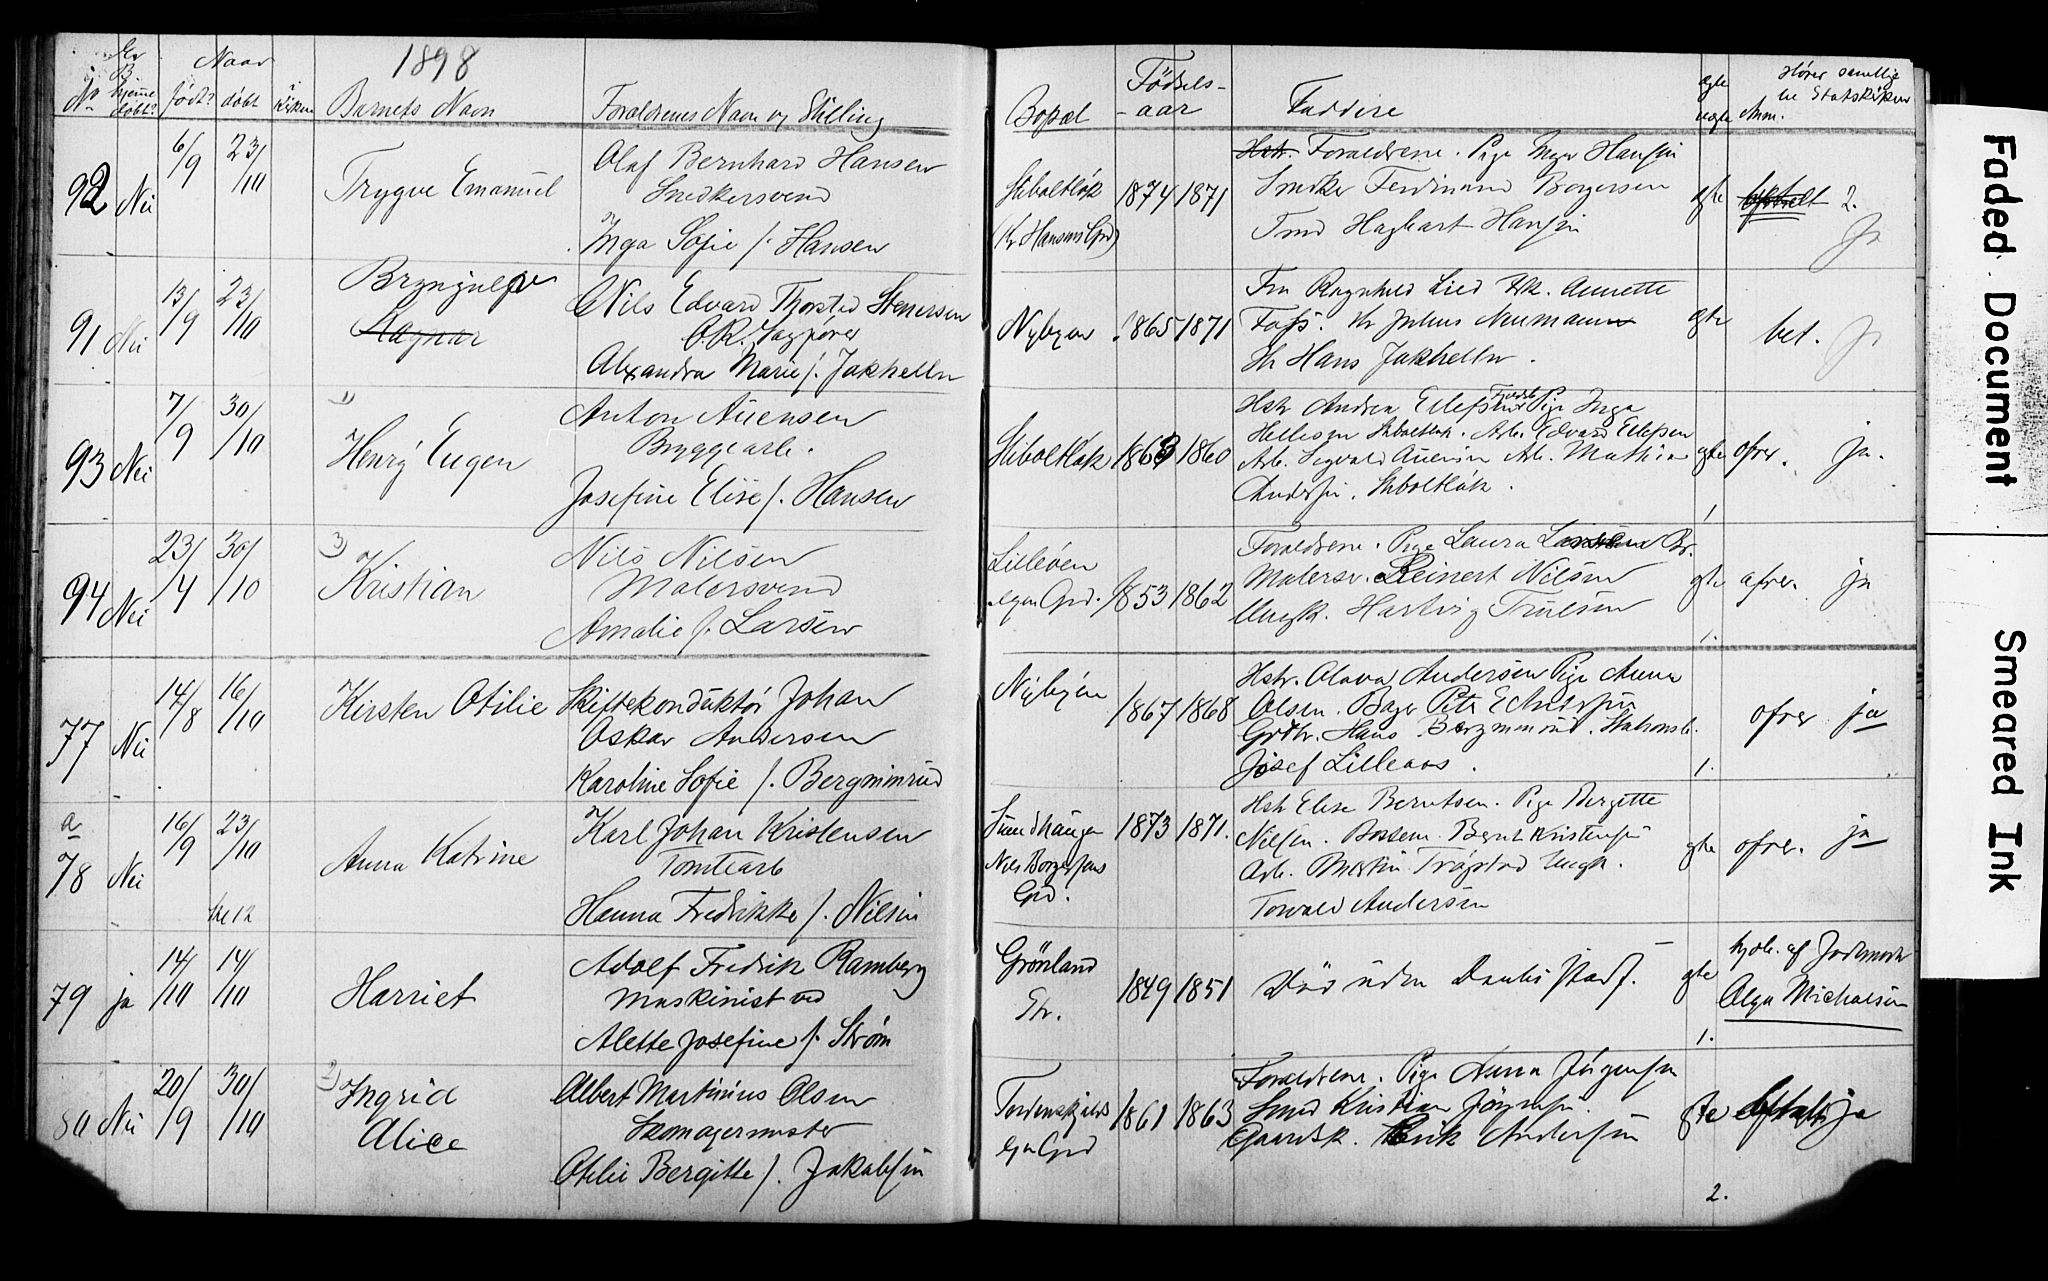 1898
No
Er
B.
hjemme
døbt?
Naar
født?
døbt
i
Kirken
Barnets Navn
Forældrenes Navn og Stilling
Bopæl
Fødsels-
-aar
Faddere
ægte
uægte
Hører samtlige
til Statskirken
Anm.
92 Nei 6/9 23/10
Trygve Emanuel
Olaf Bernhard Hansen
Snedkersvend
Inga Sofie f. Hansen
Skiboltløk
(Kr Hansens Grd)
1874 1871
Hstr. Forældrene. Pige Inger Hansen
Smeker Ferdinand Borgersen
Tmd Hagbart Hansen
gte
2.
ja
91 Nei 13/9 23/10
Brynjulf
Ragnar
Nils Edvard Thorsted Stenersen
O.R. Sagfører
Alexandra Marie f. Jakhelln
Nybyen 1865 1871
Fru Ragnhild Lied Frk. Annette
Foss. Hr Julius Neumann
Hr Hans Jakhelln.
gte
bet. ja
93 Nei 7/9 30/10
1)
Henry Eugen
Anton Auensen
Bryggearb.
Josefine Elise f. Hansen
Skiboltløk 1863 1860
Hstr Andrea Ellefsen Pige Inga
Hellesen Skiboltløk. Arb. Edvard Ellefsen
Arb. Sigvald Auensen Arb. Mathias
Andersen. Skiboltløk.
gte ofrer. ja.
1.
94 Nei 23/4 30/10
3)
Kristian
Nils Nilsen
Malersvend
Amalie f. Larsen
Lilleøen
egen Grd. 1853 1862
Forældrene. Pige Laura Larsen Br.
Malersv. Reinert Nilsen
Ungk. Hartvig Truelsen
gte ofrer. ja
1.
77 Nei 14/8 16/10
Kirsten Otilie
Skiftekonduktør Johan
Oskar Andersen
Karoline Sofie f. Bergminrud
Nybyen
1867 1868
Hstr. Olava Andersen Pige Anna
Olsen. Bager Petr Echetsen
Grdbr. Hans Bergminrud. Stationsb.
Josef Lilleaas.
1.
ofrer ja
a
78 Nei 16/9 23/10
kl 12
Anna Katrine
Karl Johan Kristensen
Tomtearb
Hanna Fredrikke f. Nilsen
Sundhaugen
Nils Borgersens
Grd.
1873 1871.
Hstr Elise Berntsen. Pige Birgitte
Nilsen. Bernt Kristensen
Arb. Martin Trøgstad Ungk.
Torvald Andersen
gte ofrer. ja
79 ja 14/10 14/10
Harriet
Adolf Fredrik Ramberg
Maskinist ved
Alette Josefine f. Strøm
Grønland
Str.
1849 1851
Død uden Daabs stadf.
gte
1.
hjdb. af Jordmoder
Olga Michalsen
80 Nei 20/9 30/10
2)
Ingrid
Alice
Albert Martinius Olsen
Skomagermester
Otilie Bergitte f. Jakobsen
Tordenskjolds
egen Grd
1861 1863
Forældrene. Pige Anna Jørgensen
Smed Kristian Jørgensen.
Gaardsk. Rink Andersen
gte ja
2.
Faded Document
Smeared Ink